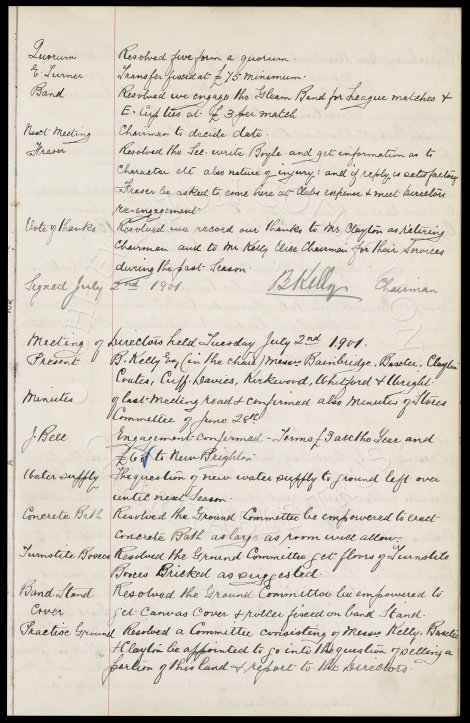 Quorum Resolved five form a quorum.
E. Turner Transfer fixed at £75 minimum.
Band Resolved we engage the Gleam Band for League matches &
E. Cup ties at £3 per match
Next Meeting Chairman to decide date.
Fraser Resolved the Sec. write Boyle and get information as to
character etc also nature of injury: and if reply is satisfactory
Fraser be asked to come here at Clubs expense & meet Directors
re-engagement.
Vote of thanks Resolved we record our thanks to Mr. Clayton as retiring
Chairman and to Mr Kelly Vice Chairman for their Services
during the past Season.
Signed July 2nd 1901 B Kelly Chairman
Meeting of Directors held Tuesday July 2nd 1901.
Present B. Kelly Esq (in the chair) Messrs Bainbridge, Baxter, Clayton
Coates, Cuff, Davies, Kirkwood, Whitford & Wright.
Minutes of last Meeting read & confirmed also Minutes of Stores
Committee of June 28th
J. Bell Engagement confirmed - Terms £3 all the Year and
to New Brighton.
Water supply The question of new water supply to ground left over
until next Season.
Concrete Bath Resolved the Ground Committee be empowered to erect
Concrete Bath as large as room will allow.
Turnstile Boxes Resolved the Ground Committee get floors of Turnstile
Boxes Bricked as suggested
Band Stand Resolved the Ground Committee be empowered to
Cover get Canvas Cover & roller fixed on band Stand.
Practice Ground Resolved a Committee consisting of Messrs Kelly, Baxter
& Clayton be appointed to go into the question of selling a
portion of this land & report to the Directors.